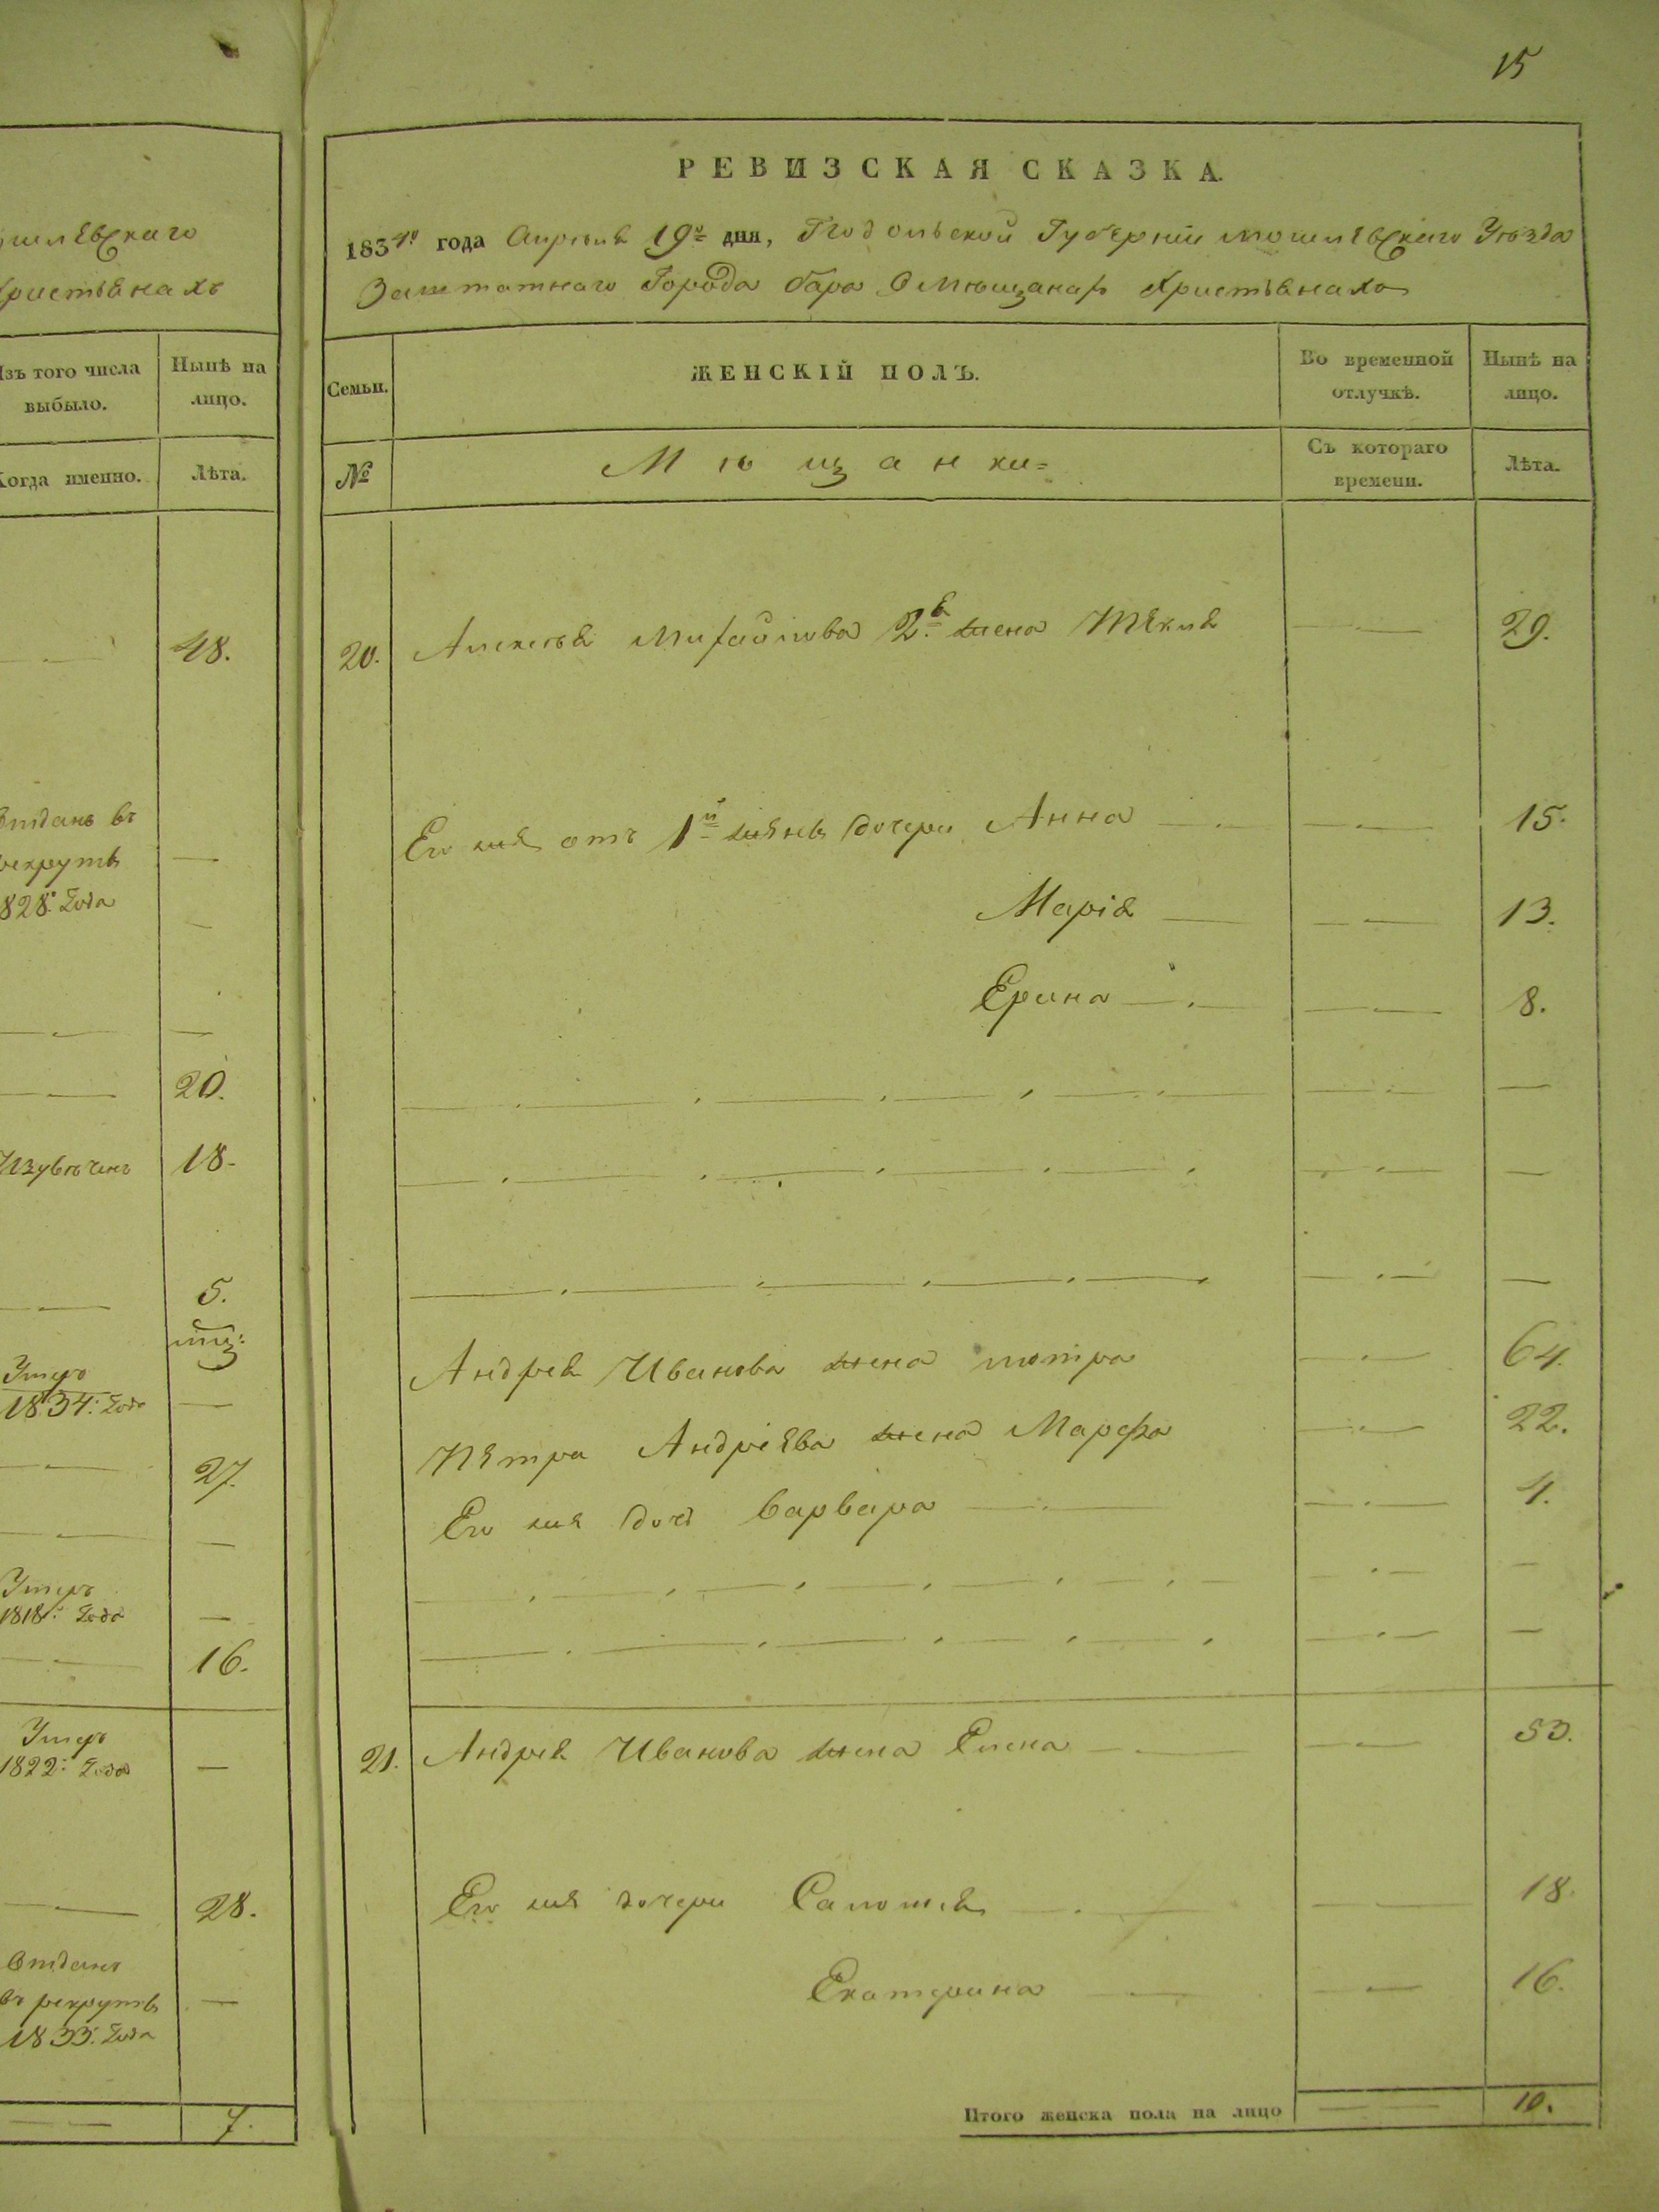 15
шлевскаго
христьянахъ
Изъ того числа выбыло.
Нынѣ на лицо.
Когда именно.
Лѣта.
48.
Отданъ въ
рекруты
1828. года
20.
Изувѣченъ 18.
5.
Умеръ
1834: года
27.
Умеръ
1818: года
16.
Умеръ
1822: года
28.
Отданъ
въ рекруты
1833: года
7.
РЕВИЗСКАЯ СКАЗКА.
1834го года Апреля 19го дня, Подольской Губерніи Могилевскаго Уѣзда
Заштатнаго Города Бара О Мѣщанахъ Христьянахъ
Семьи.
ЖЕНСКІЙ ПОЛЪ.
Во временной отлучкѣ.
Нынѣ на лицо.
№
Мѣщанки
Съ котораго времени.
Лѣта.
20. Алексѣя Михайлова 2я жена Текля 29.
Его же отъ 1й жены дочери Анна 15.
Марія 13.
Ерина 8.
Андрея Иванова жена 64.
Петра Андреева жена Марфа 22.
Его же дочь Варвара 4.
21. Андрея Иванова жена Елена 53.
Его же дочери Саломея 18.
Екатерина 16.
Итого женска пола на лицо 10.